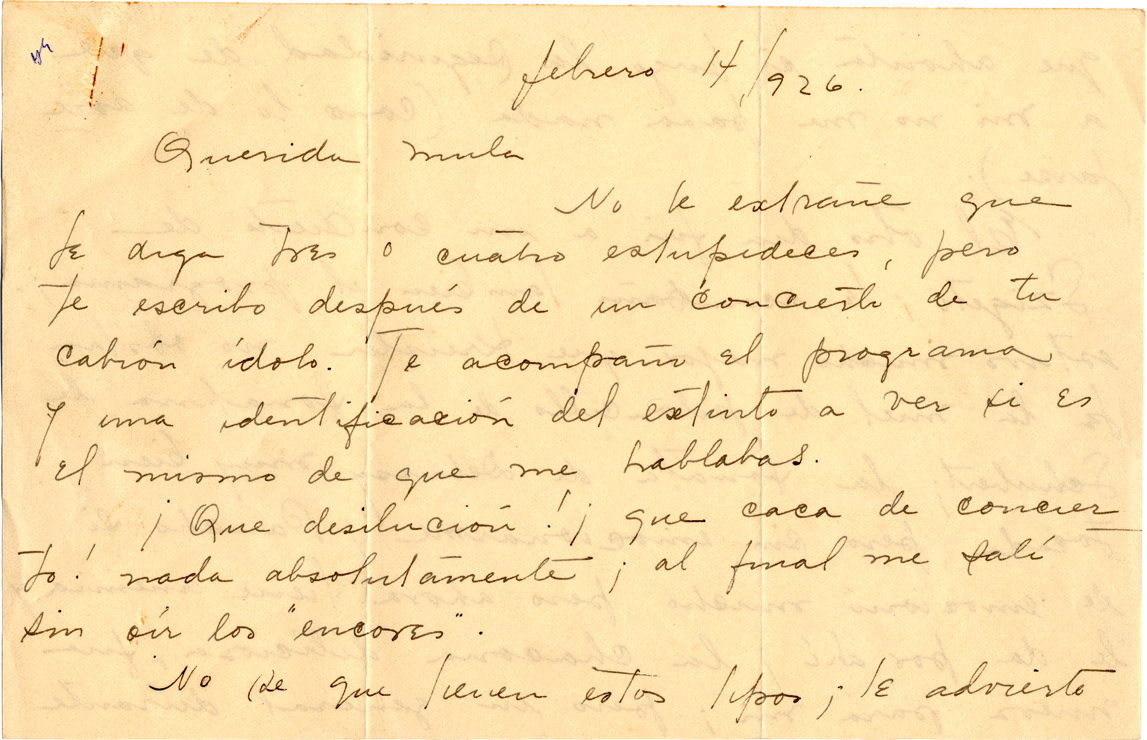 febrero 14/926.
Querida mula
No te extrañe que
te diga tres o cuatro estupideces, pero
te escribo después de un concierto de tu
cabrón ídolo. Te acompaño el programa
y una identificación del extinto a ver si es
el mismo de que me hablabas.
¡Que desilución! ¡que caca de concier
to! nada absolutamente; al final me salí
sin oír los "encores".
No se que tienen estos tipos; te advierto